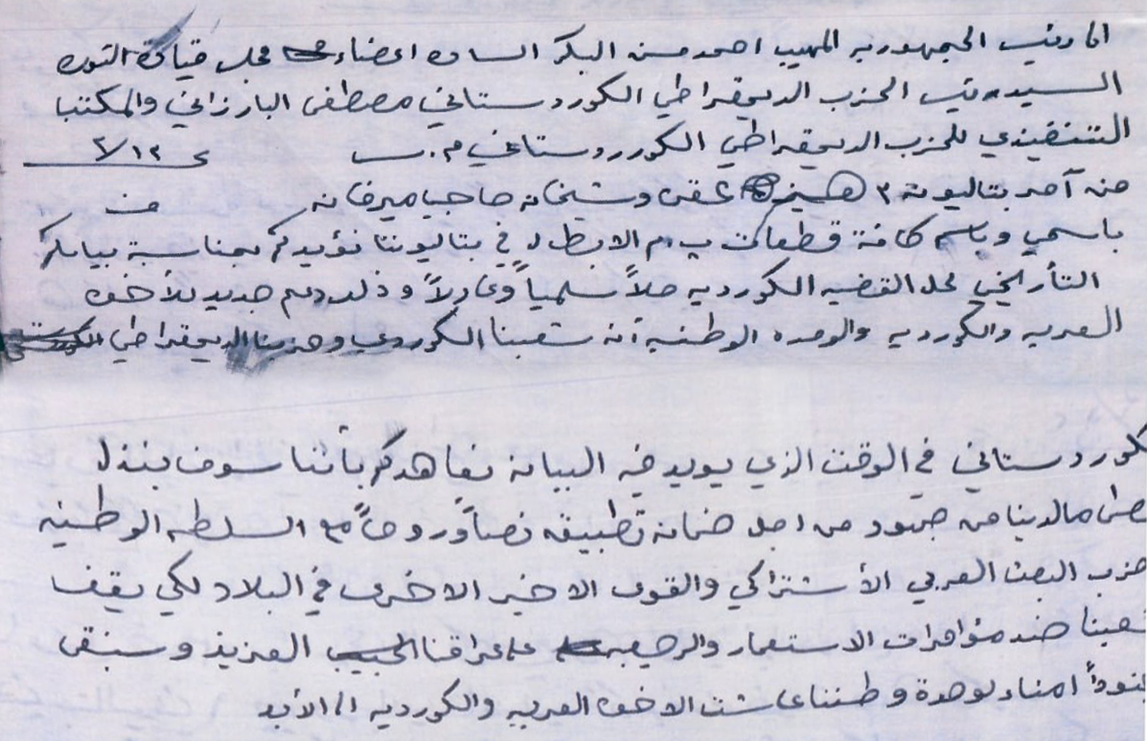 الى رئيس الجمهوريه المهيب احمد حسن البكر الساده اعضاء مجلس قيادة الثوره
السيد رئيس الحزب الديمقراطي الكوردستاني مصطفى البارزاني والمكتب
التنفيذي للحزب الديمقراطي الكوردستاني م. س
من آمر بتاليون ٣ هيز عقره وشيخان حاجي ميرخان
باسمي وباسم كافة قطعات ب م الابطال في بتاليوننا نؤيدكم بمناسبة بيانكم
التأريخي لحل القضيه الكورديه حلاً سلمياً وعادلاً وذلك دعم جديد للأخوه
العربيه والكورديه والوحده الوطنيه أن شعبنا الكوردي وحزبنا الديمقراطي
كوردستاني في الوقت الذي يويد فيه البيان نعاهدكم بأننا سوف نبذل
مالدينا من جهود من اجل ضمان تطبيقه نصاً وروحاً مع السلطه الوطنيه
حزب البعث العربي الأشتراكي والقوى الاخير الاخرى في البلاد لكي يقف
شعبنا ضد مؤامرات الاستعمار والرجعيه على عراقنا الحبيب العزيز وسنبقى
جنوداً امناء لوحدة وطننا عاشت الاخوه العربيه والكورديه الى الأبد